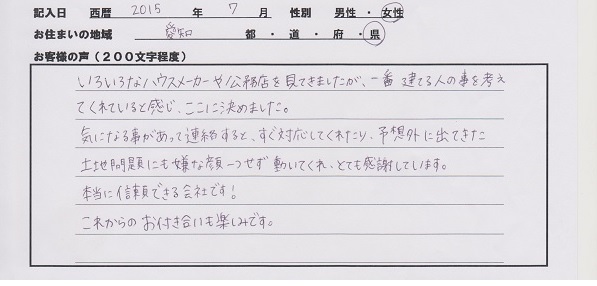 記入日 西暦 2015 年 7 月 性別 男性・女性
お住まいの地域 愛知 都・道・府・県
お客様の声（200文字程度）
いろいろなハウスメーカーや公務店を見てきましたが、一番 建てる人の事を考え
てくれていると感じ、ここに決めました。
気になる事があって連絡すると、すぐ対応してくれたり、予想外に出てきた
土地問題にも嫌な顔一つせず動いてくれ、とても感謝しています。
本当に信頼できる会社です！
これからのお付き合いも楽しみです。